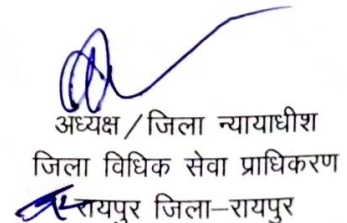 अध्यक्ष / जिला न्यायाधीश
जिला विधिक सेवा प्राधिकरण
रायपुर जिला–रायपुर